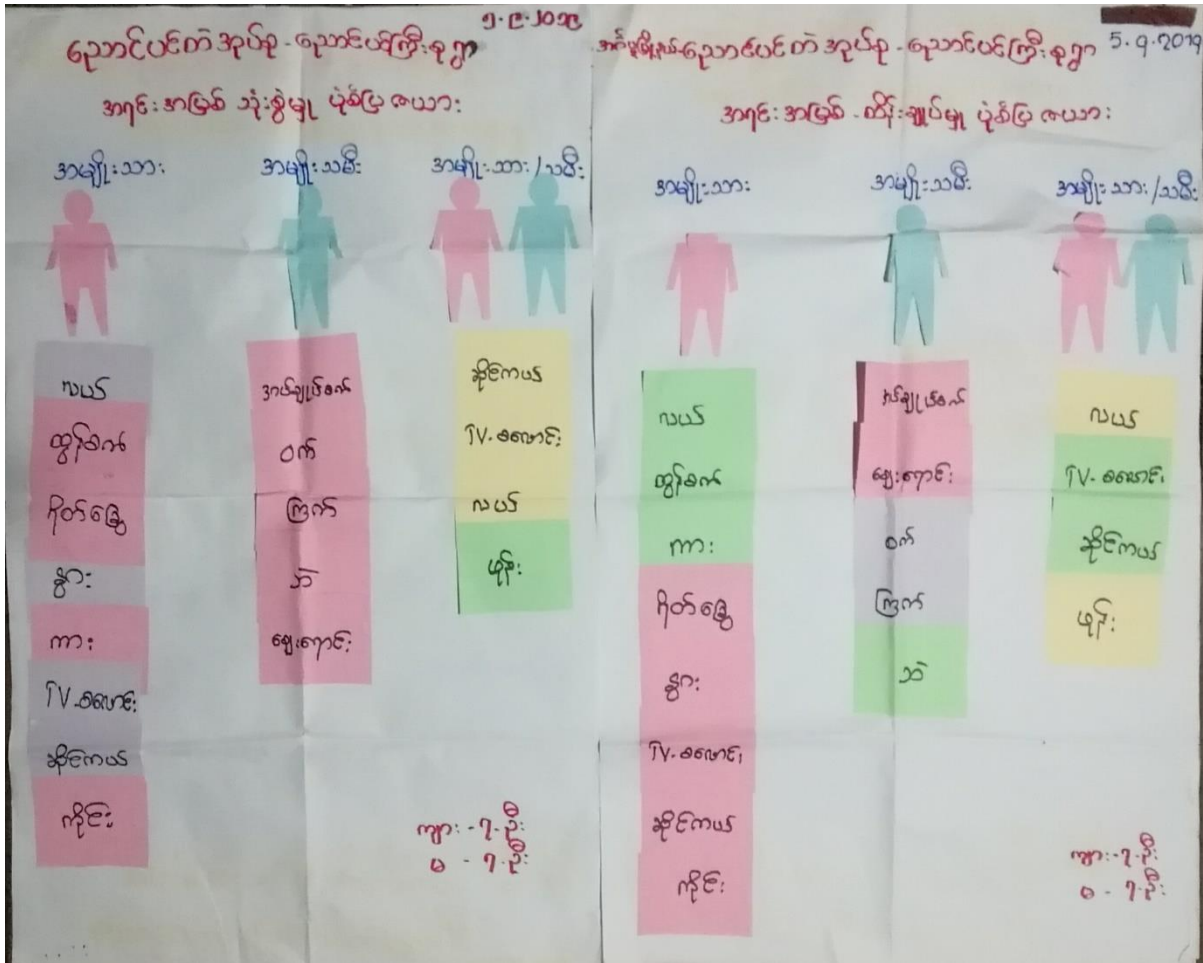 ၅.၉.၂၀၁၉
ညောင်ပင်ကဲအုပ်စု - ညောင်ပင်ကြီးစုရွာ
အရင်းအမြစ် သုံးစွဲမှု ပုံစံပြဇယား
အမျိုးသား
အမျိုးသမီး
အမျိုးသား/သမီး
လယ်
ထွန်စက်
ဂိုတ်ခြွေ
နွား
ကား
TV-စလောင်း
ဆိုင်ကယ်
ကိုင်း
အပ်ချုပ်စက်
ဝက်
ကြက်
ဘဲ
ဈေးရောင်း
ဆိုင်ကယ်
TV-စလောင်း
လယ်
ဖုန်း
ကျား - ၇-ဦး
မ - ၇-ဦး
5.9.2019
ညောင်ပင်ကဲအုပ်စု - ညောင်ပင်ကြီးစုရွာ
အရင်းအမြစ် - ထိန်းချုပ်မှု ပုံစံပြဇယား
အမျိုးသား
အမျိုးသမီး
အမျိုးသား/သမီး
လယ်
ထွန်စက်
ကား
ဂိုတ်ခြွေ
နွား
TV-စလောင်း
ဆိုင်ကယ်
ကိုင်း
အပ်ချုပ်စက်
ဈေးရောင်း
ဝက်
ကြက်
ဘဲ
လယ်
TV-စလောင်း
ဆိုင်ကယ်
ဖုန်း
ကျား-၇-ဦး
မ - ၇-ဦး